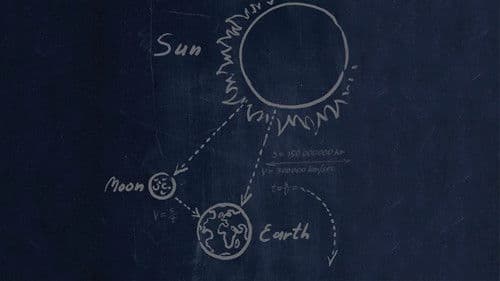 Sun
S = 150 000 000 km
V = 300 000 km/sec
Moon
Earth